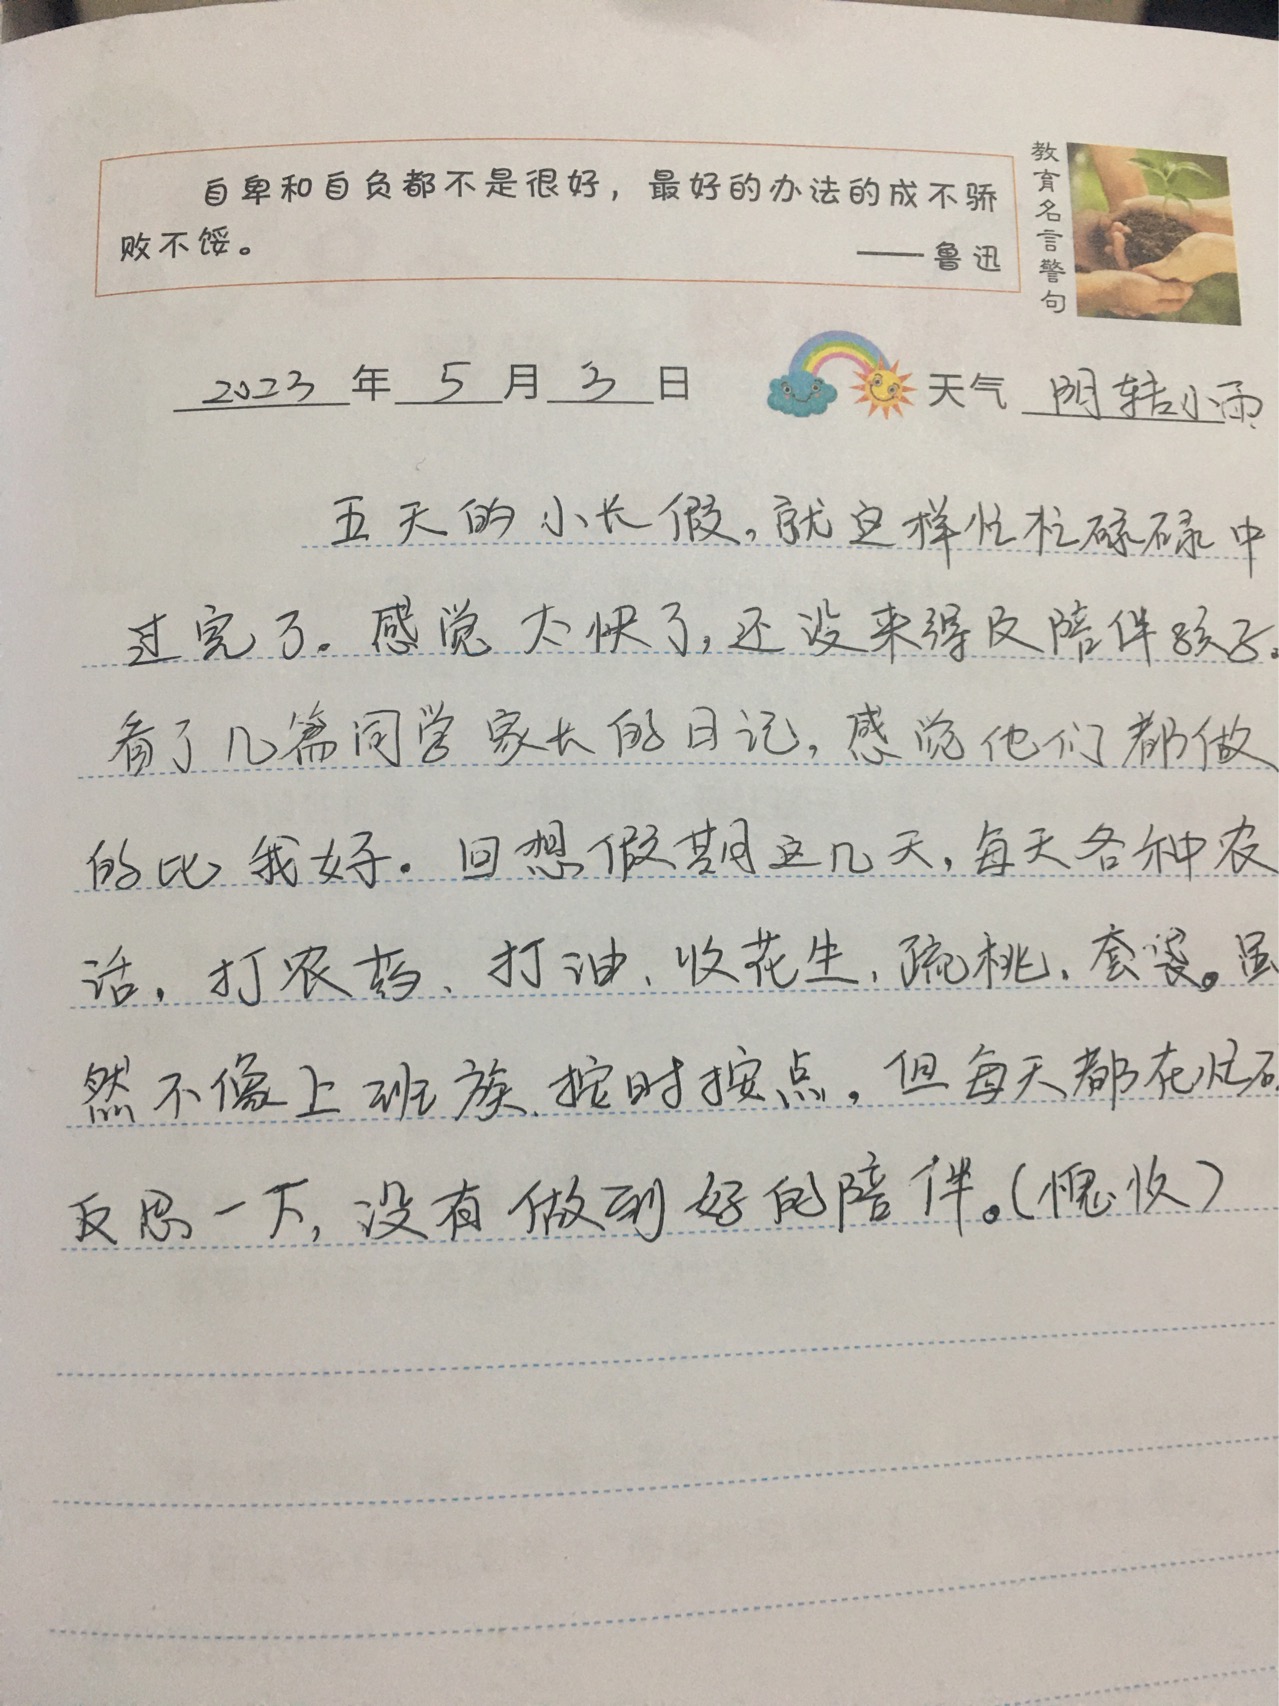 自卑和自负都不是很好，最好的办法的成不骄
败不馁。
——鲁迅
教育名言警句
2023年5月3日 天气 阴转小雨
五天的小长假，就这样忙忙碌碌中
过完了。感觉太快了，还没来得及陪伴孩子。
看了几篇同学家长的日记，感觉他们都做
的比我好。回想假期这几天，每天各种农
活，打农药、打油、收花生、疏桃、套袋。虽
然不像上班族、按时按点，但每天都在忙碌
反思一下，没有做到好的陪伴。（愧疚）